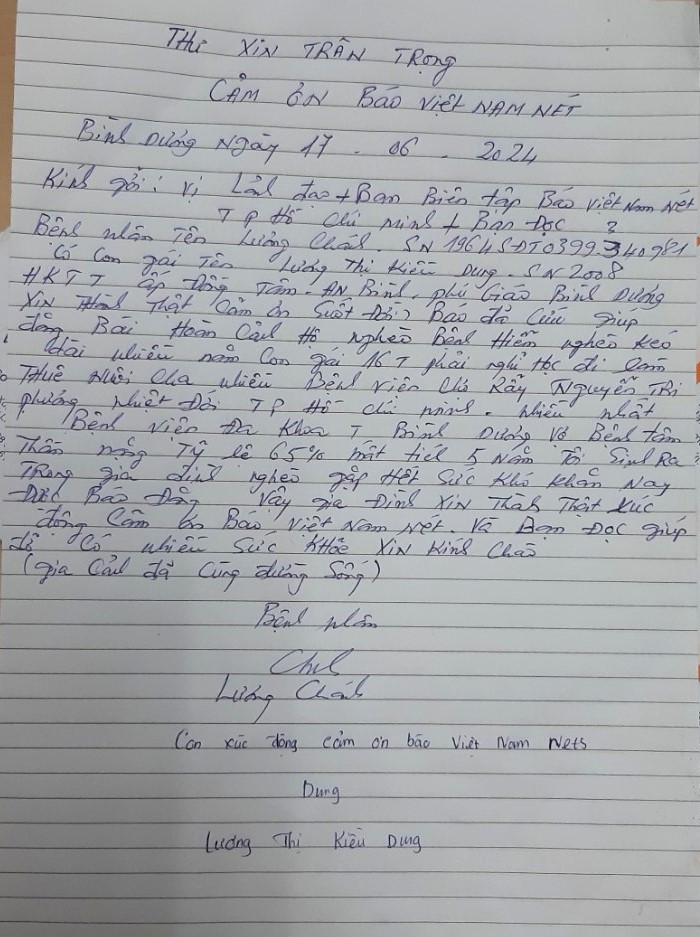 THƯ XIN TRÂN TRỌNG
CẢM ƠN BÁO VIỆT NAM NÉT
BÌNH DƯƠNG NGÀY 17 - 06 - 2024
Kính gởi: vị Lãnh đạo + Ban Biên tập Báo Việt Nam Nét
TP Hồ chí minh + Bạn Đọc
Bệnh nhân Tên Lương Chánh. SN 1964 SĐT 0399340981
Có Con gái Tên Lương Thị Kiều Dung. SN 2008
HKTT ấp Đồng Tâm. AN Bình. phú Giáo Bình Dương
XIN thành Thật Cảm ơn Suốt Đời Báo đã Cứu giúp
đăng Bài Hoàn Cảnh Hộ nghèo Bệnh Hiểm nghèo kéo
dài nhiều năm Con gái 16T phải nghỉ Học đi làm
Thuê nuôi Cha nhiều Bệnh viện Chợ Rẫy Nguyễn Tri
phương nhiệt Đới TP Hồ chí minh. nhiều nhất
Bệnh viện Đa Khoa T Bình Dương Vì Bệnh tâm
Thần nặng Tỷ lê 65% mất tiel 5 Năm Tôi Sinh Ra
Trong gia đình nghèo gặp Hết Sức Khó khăn Nay
Được Báo Đăng Vậy gia Đình XIN Thành Thật Xúc
động Cảm ơn Báo Việt Nam Nét. Và Bạn Đọc giúp
đỡ Có nhiều Sức Khỏe XIN Kính Chào
(gia Cảnh đã Cùng đường Sống)
Bệnh nhân
Lương Chánh
Con xúc động cảm ơn báo Việt Nam Nets
Dung
Lương Thị Kiều Dung